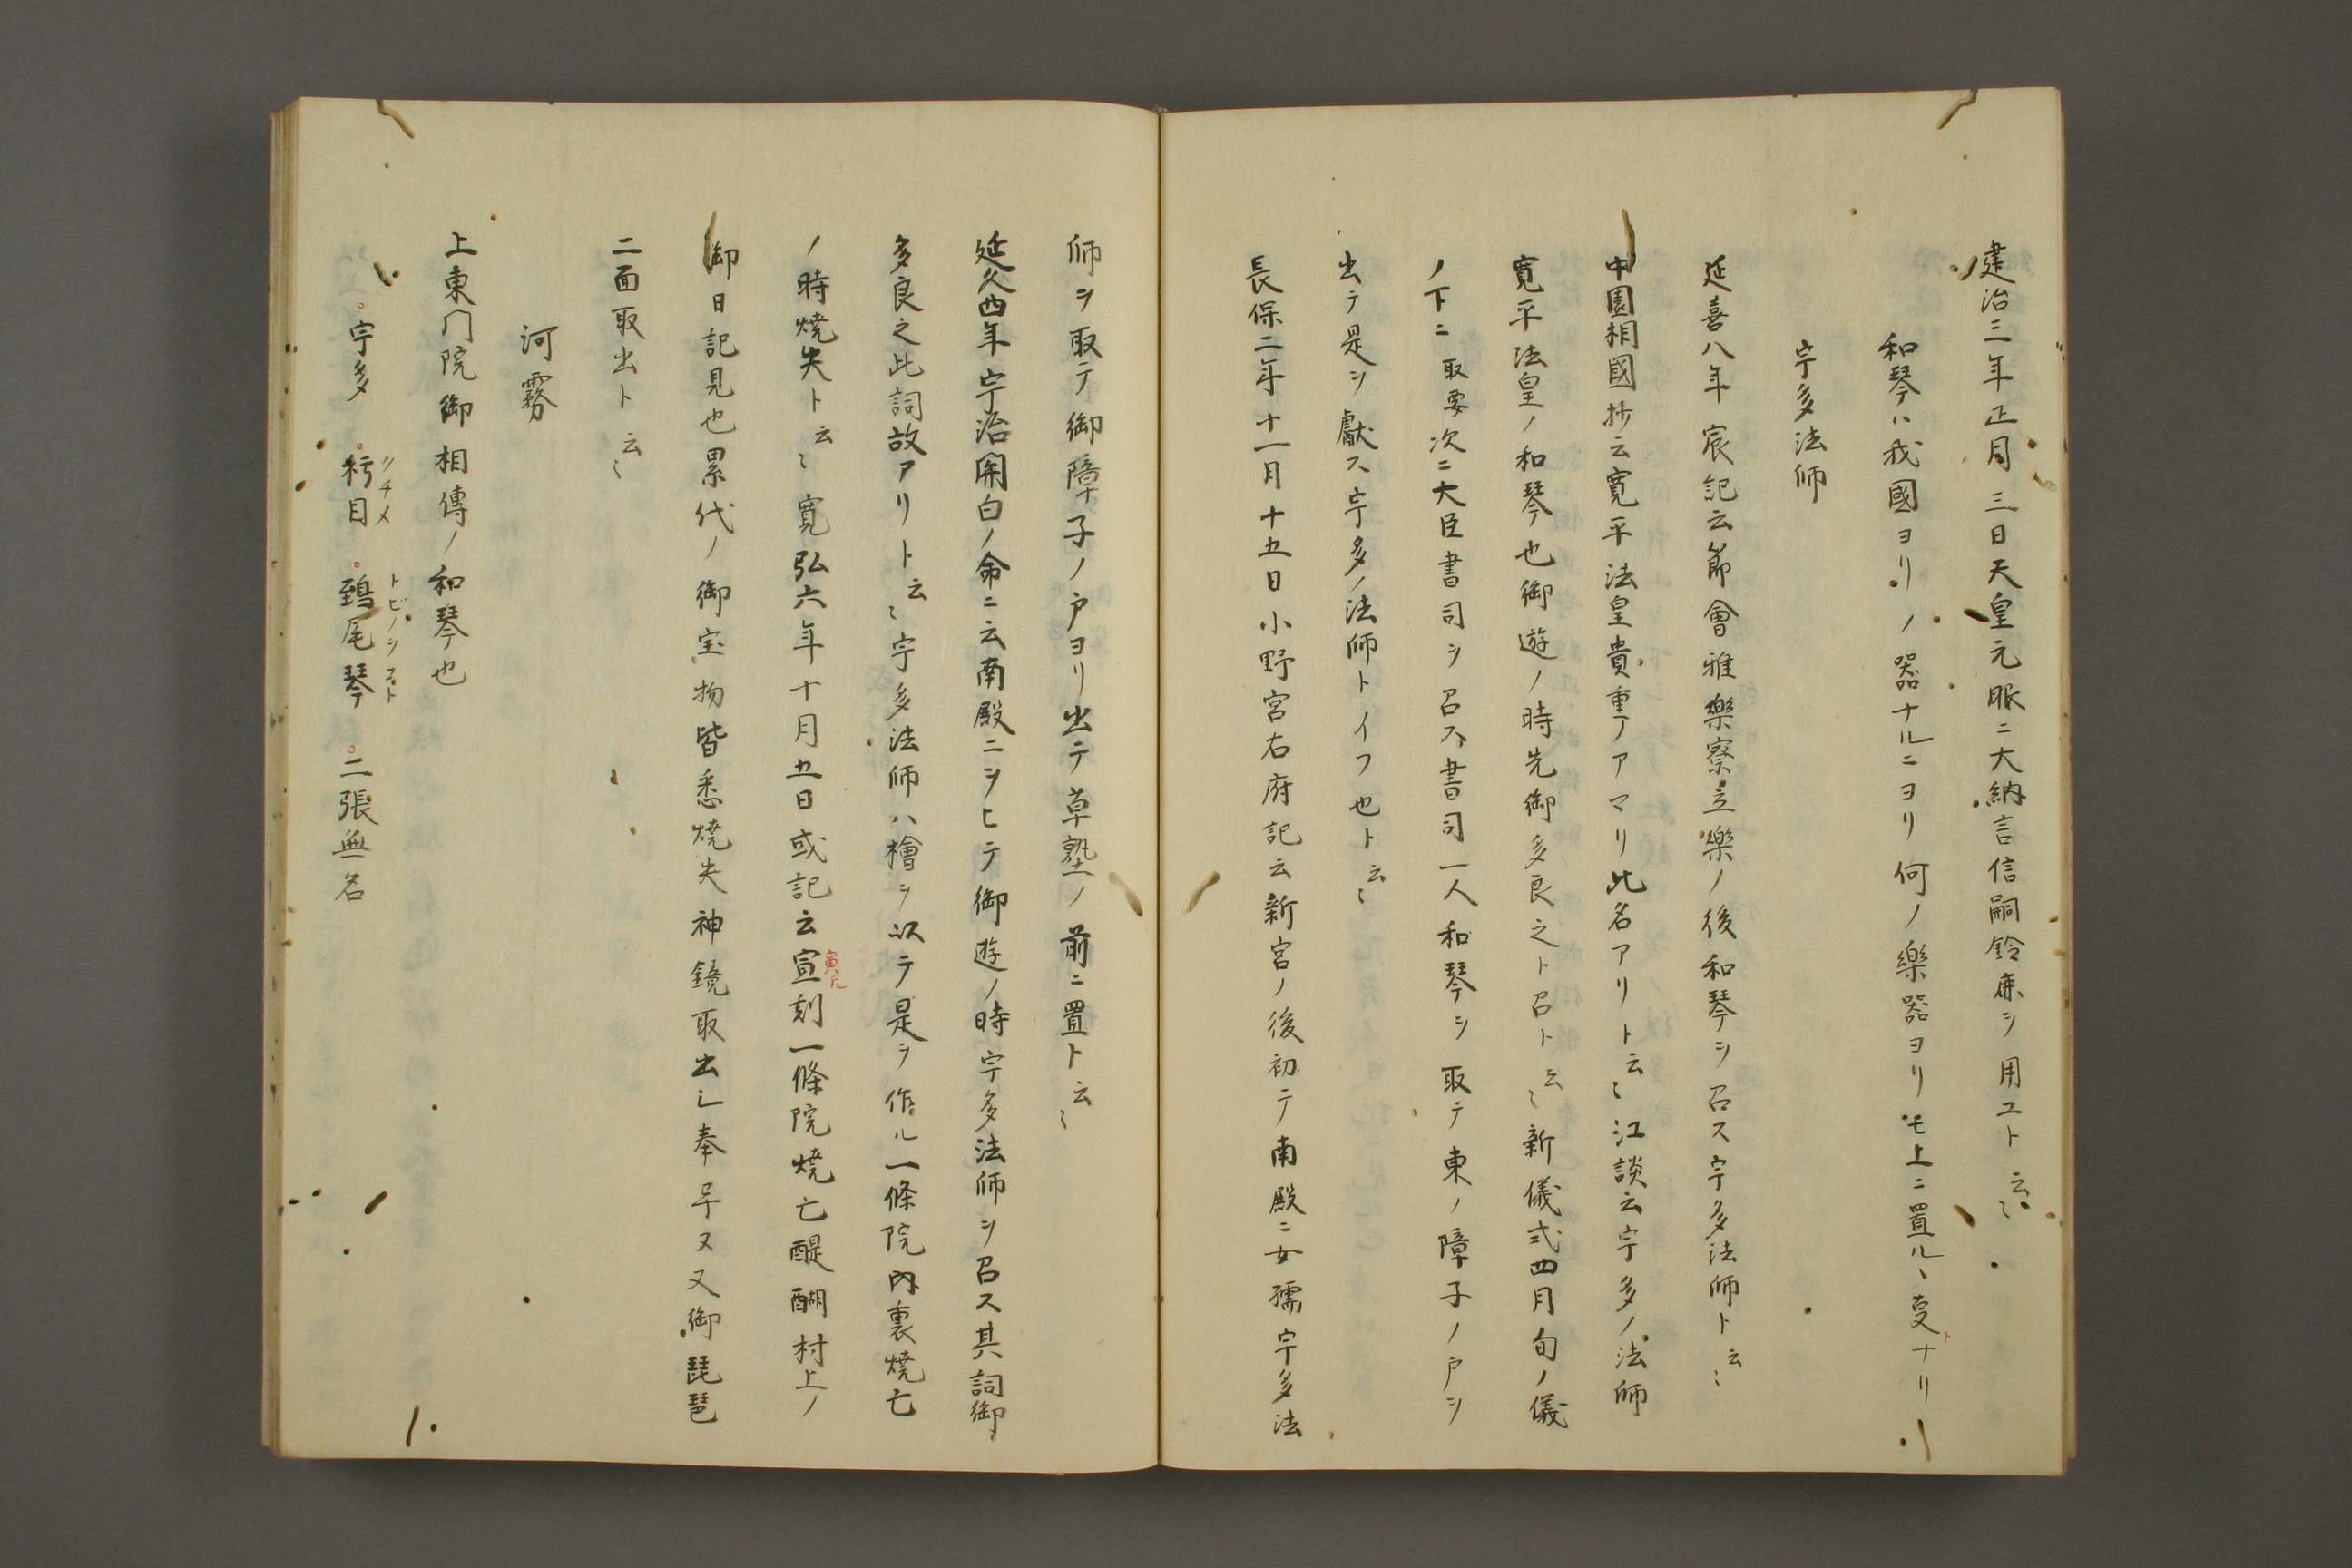 建治三年正月三日天皇元服ニ大納言信嗣鈴鹿ヲ用ユト云〻
和琴ハ我國ヨリノ器ナルニヨリ何ノ樂器ヨリモ上ニ置ル、叓トナリ
宇多法師
延喜八年宸記云節會雅樂寮立樂ノ後和琴ヲ召ス宇多法師ト云〻
中園相國抄云寛平法皇貴重アマリ此名アリト云〻江談云宇多ノ法師
寛平法皇ノ和琴也御遊ノ時先御多良之ト召ト云〻新儀式四月旬ノ儀
ノ下ニ取要次ニ大臣書司ヲ召ス書司一人和琴ヲ取テ東ノ障子ノ戸ヲ
出テ是ヲ獻ス宇多ノ法師トイフ也ト云〻
長保二年十一月十五日小野宮右府記云新宮ノ後初テ南殿ニ女孺宇多法
師ヲ取テ御障子ノ戸ヨリ出テ草塾ノ前ニ置ト云〻
延久四年宇治関白ノ命ニ云南殿ニヲヒテ御遊ノ時宇多法師ヲ召ス其詞御
多良之此詞故アリト云〻宇多法師ハ檜ヲ以テ是ヲ作ル一條院内裏燒亡
ノ時燒失ト云〻寛弘六年十月五日或記云宣刻一條院燒亡醍醐村上ノ
御日記見也累代ノ御宝物皆悉燒失神鏡取出シ奉乎又又御琵琶
二面取出ト云〻
河霧
上東門院御相傳ノ和琴也
宇多 朽目クチメ 鵄尾琴トビノヲコト 二張無名